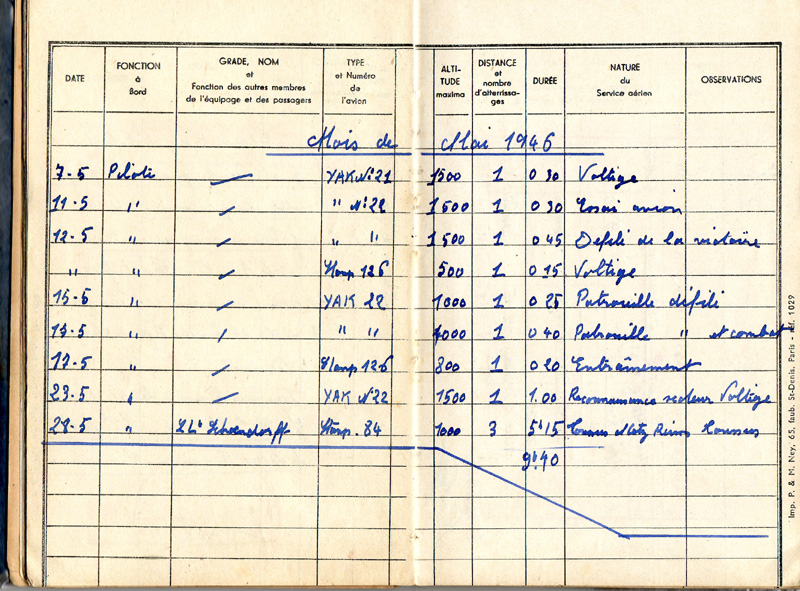 DATE FONCTION à Bord GRADE, NOM et Fonction des autres membres de l'équipage et des passagers TYPE et Numéro de l'avion ALTI-TUDE maxima DISTANCE et nombre d'atterrissa-ges DURÉE NATURE du Service aérien OBSERVATIONS
Mois de Mai 1946
7-5 Pilote YAK N°21 1500 1 0 30 Voltige
11-5 " " N°22 1500 1 0 30 Essai avion
12-5 " " " 1500 1 0 45 Défilé de la victoire
" " Stamp 126 500 1 0 15 Voltige
15-5 " YAK 22 1000 1 0 25 Patrouille défilé
" " " 1 0 40 Patrouille " et combat
17-5 " Stamp 126 800 1 0 20 Entraînement
23-5 " YAK N°22 1500 1 1.00 Reconnaissance secteur Voltige
28-5 " Schoendorff Stamp. 84 1000 3 5h15 Metz Reims
9h40
Imp. P. & M. Ney, 65, faub. St-Denis, Paris - Réf. 1029